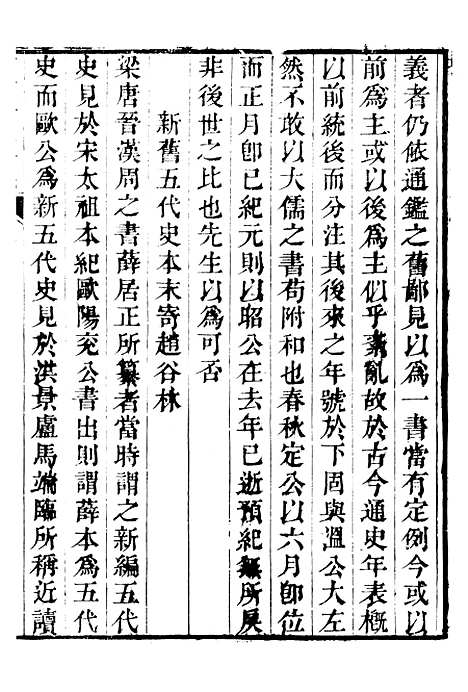 義者仍依通鑑之舊鄙見以為一書當有定例今或以
前為主或以後為主似乎紊亂故於古今通史年表概
以前統後而分注其後來之年號於下固與溫公大左
然不敢以大儒之書苟附和也春秋定公以六月卽位
而正月卽已紀元則以昭公在去年已逝預紀無所戾
非後世之比也先生以為可否
新舊五代史本末寄趙谷林
梁唐晉漢周之書薛居正所纂者當時謂之新編五代
史見於宋太祖本紀歐陽兖公書出則謂薛本為五代
史而歐公為新五代史見於洪景盧馬端臨所稱近讀